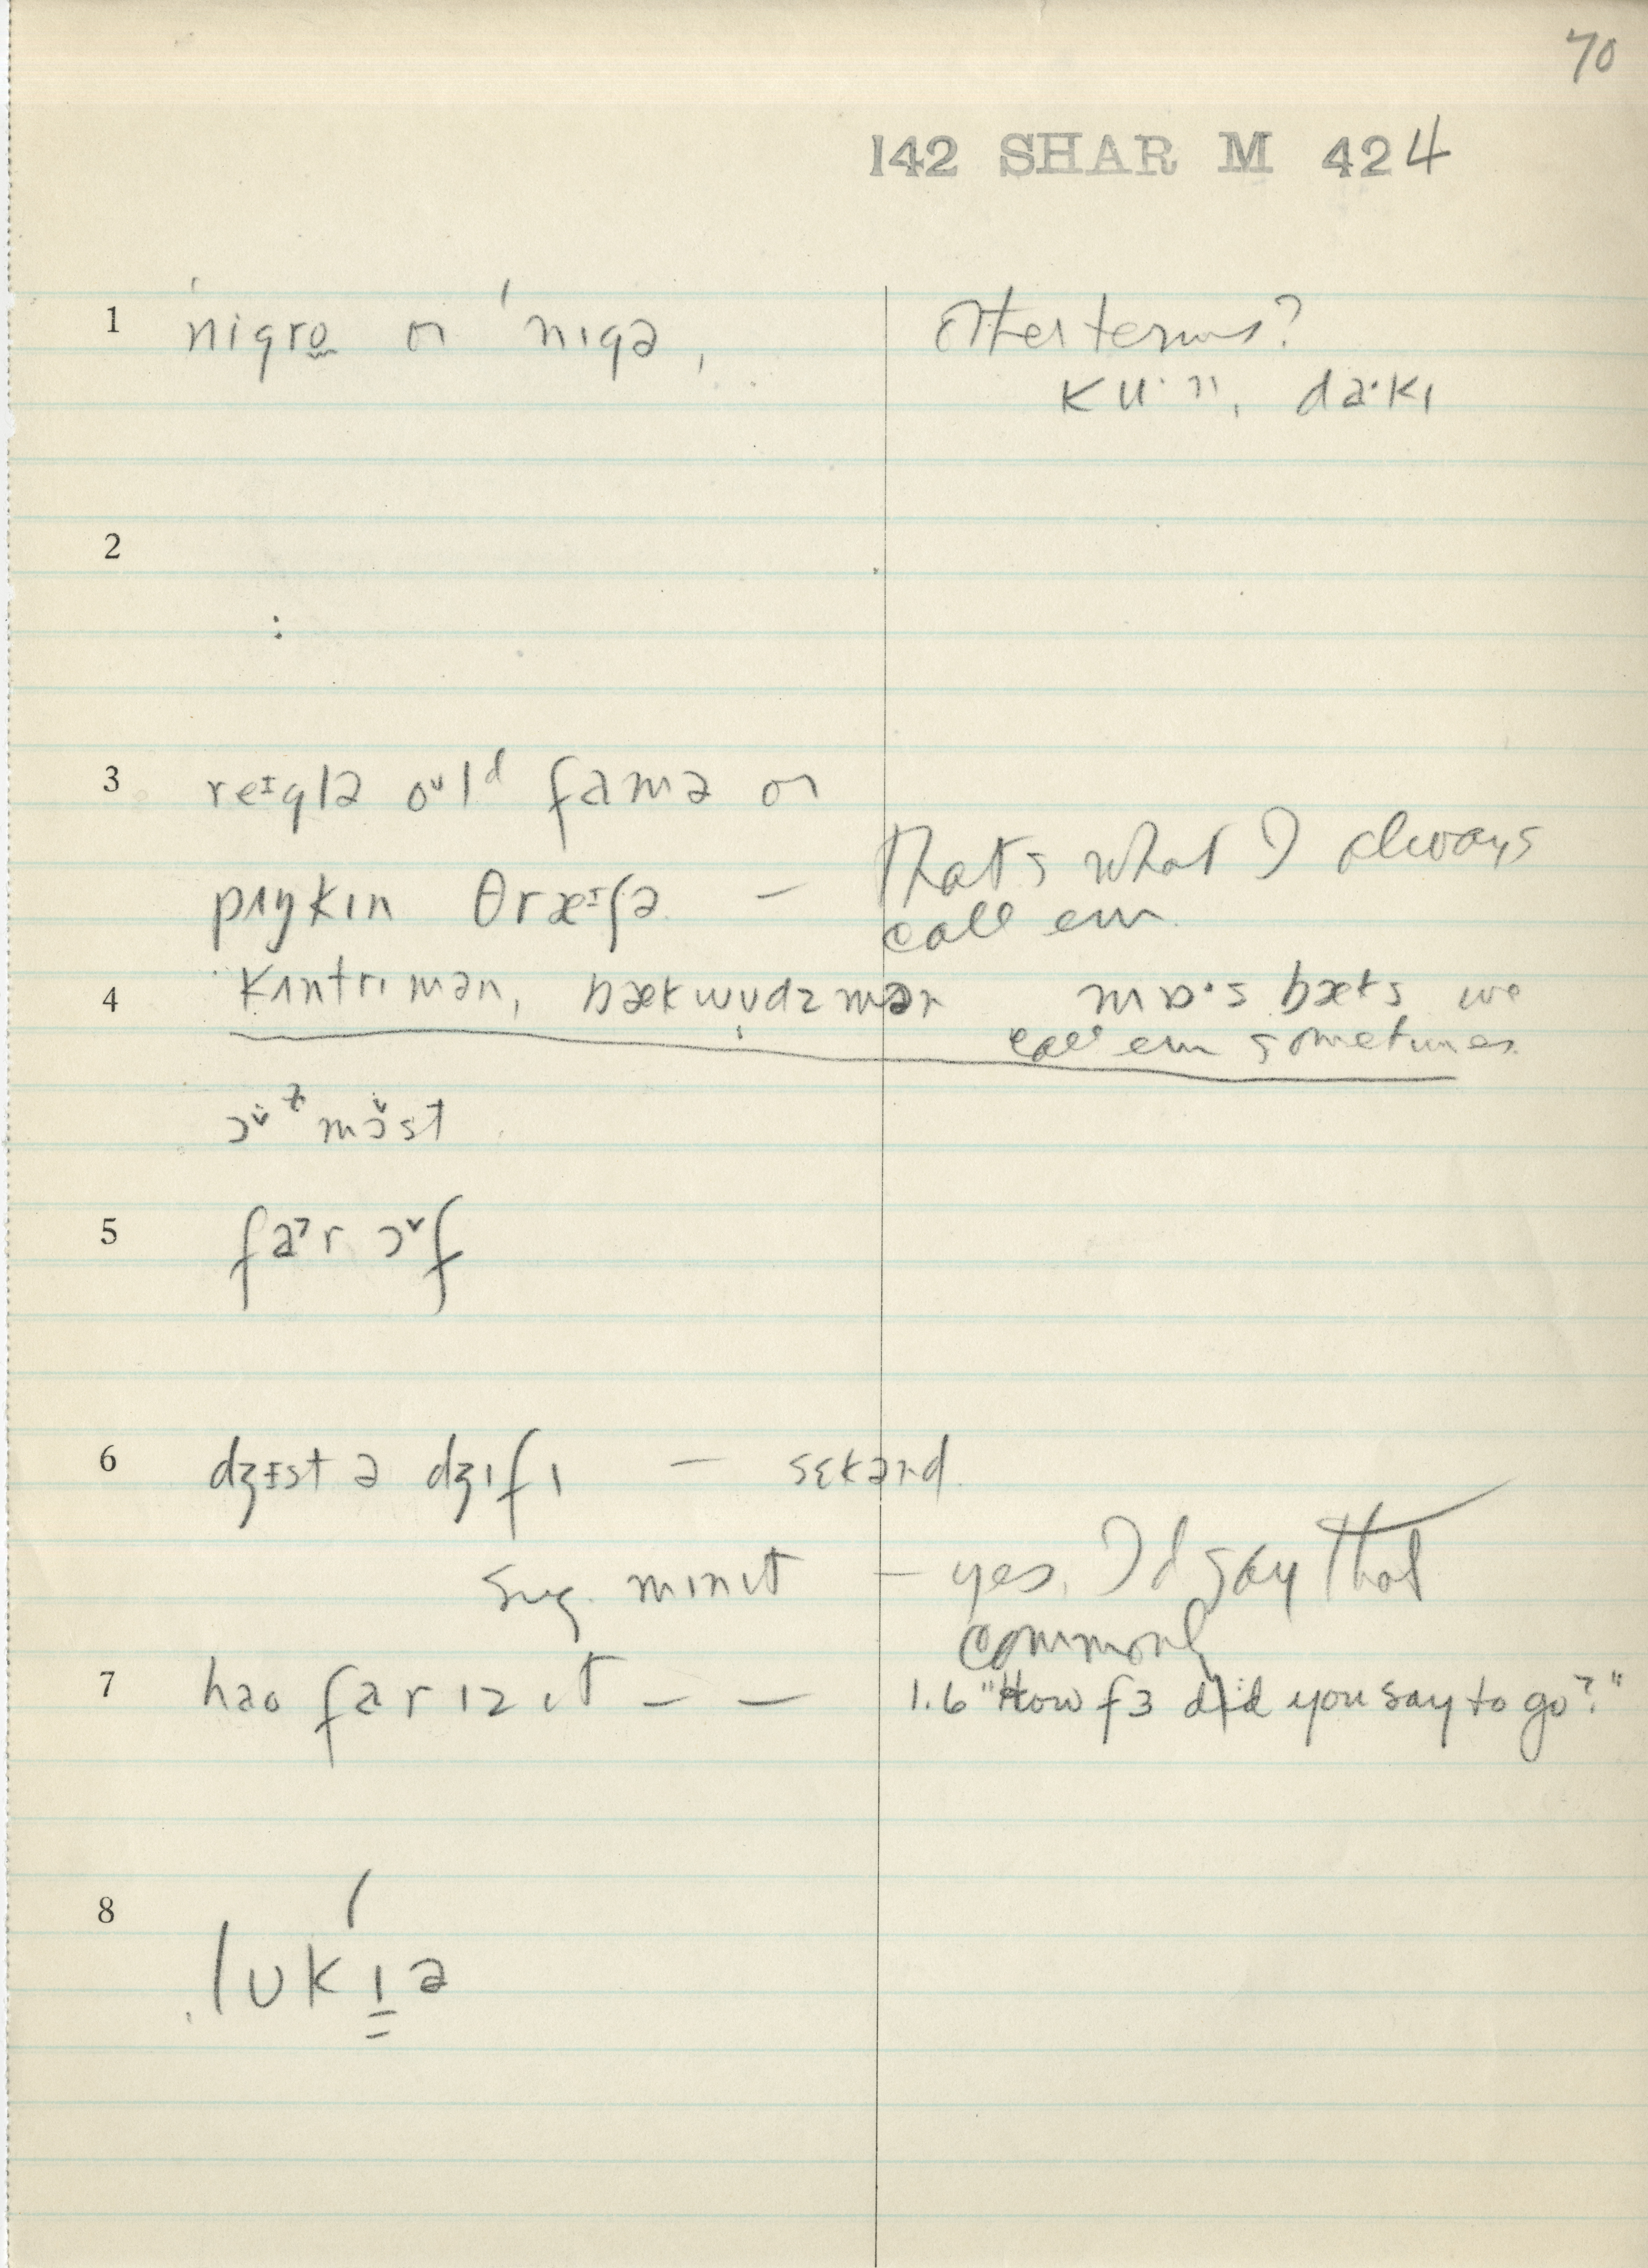 70
142 SHAR M 424
1 ˈnigro or ˈnɪgə, Other terms?
ku·n, da·kɪ
2
:
3 reɪglə oʊlᵈ famə or
pʌŋkɪn θræɪʃə — That's what I always
call em
4 kʌntri mən, bækwʊdzmən mɒ·s bæks we
call em sometimes
ɔᵛ mɔ̌st
5 far ɔᵛf
6 dʒɪst ə dʒɪfɪ — sɛkənd
sug. mɪnɪt — yes, I'd say that
commonly
7 hao far ɪz ɪt — — 1.6 "How fɜ did you say to go?"
8 lʊk ˈɪə